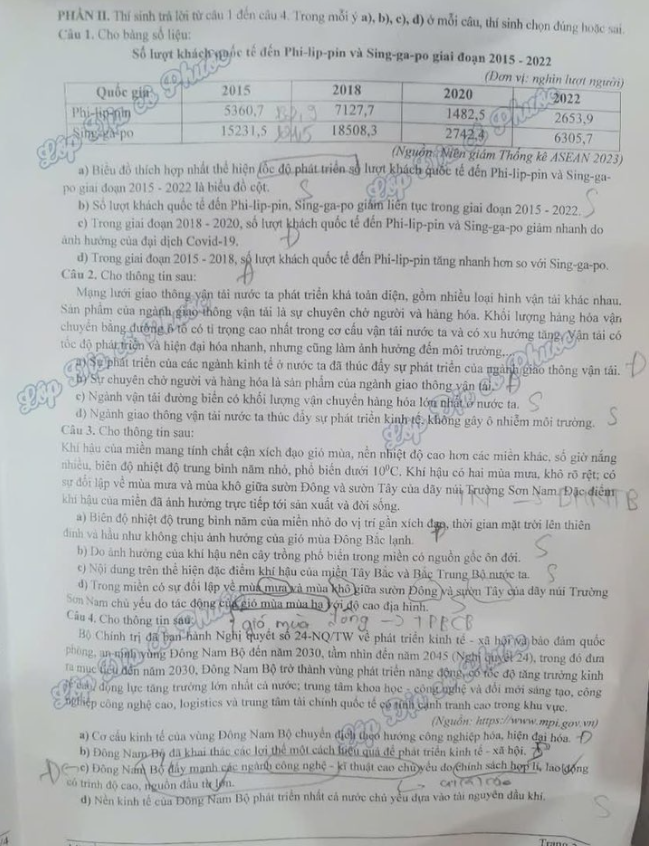 PHẦN II. Thí sinh trả lời từ câu 1 đến câu 4. Trong mỗi ý a), b), c), d) ở mỗi câu, thí sinh chọn đúng hoặc sai.
Câu 1. Cho bảng số liệu:
Số lượt khách quốc tế đến Phi-lip-pin và Sing-ga-po giai đoạn 2015 - 2022
(Đơn vị: nghìn lượt người)
Quốc gia 2015 2018 2020 2022
Phi-lip-pin 5360,7 7127,7 1482,5 2653,9
Sing-ga-po 15231,5 18508,3 2742,4 6305,7
(Nguồn: Niên giám Thống kê ASEAN 2023)
a) Biểu đồ thích hợp nhất thể hiện tốc độ phát triển số lượt khách quốc tế đến Phi-lip-pin và Sing-ga-
po giai đoạn 2015 - 2022 là biểu đồ cột. S
b) Số lượt khách quốc tế đến Phi-lip-pin, Sing-ga-po giảm liên tục trong giai đoạn 2015 - 2022. S
c) Trong giai đoạn 2018 - 2020, số lượt khách quốc tế đến Phi-lip-pin và Sing-ga-po giảm nhanh do
ảnh hưởng của đại dịch Covid-19. Đ
d) Trong giai đoạn 2015 - 2018, số lượt khách quốc tế đến Phi-lip-pin tăng nhanh hơn so với Sing-ga-po.
Câu 2. Cho thông tin sau: Đ
Mạng lưới giao thông vận tải nước ta phát triển khá toàn diện, gồm nhiều loại hình vận tải khác nhau.
Sản phẩm của ngành giao thông vận tải là sự chuyên chở người và hàng hóa. Khối lượng hàng hóa vận
chuyển bằng đường ô tô có tỉ trọng cao nhất trong cơ cấu vận tải nước ta và có xu hướng tăng. Vận tải có
tốc độ phát triển và hiện đại hóa nhanh, nhưng cũng làm ảnh hưởng đến môi trường.
a) Sự phát triển của các ngành kinh tế ở nước ta đã thúc đẩy sự phát triển của ngành giao thông vận tải. Đ
b) Sự chuyên chở người và hàng hóa là sản phẩm của ngành giao thông vận tải. Đ
c) Ngành vận tải đường biển có khối lượng vận chuyển hàng hóa lớn nhất ở nước ta. S
d) Ngành giao thông vận tải nước ta thúc đẩy sự phát triển kinh tế, không gây ô nhiễm môi trường. S
Câu 3. Cho thông tin sau:
Khí hậu của miền mang tính chất cận xích đạo gió mùa, nền nhiệt độ cao hơn các miền khác, số giờ nắng
nhiều, biên độ nhiệt độ trung bình năm nhỏ, phổ biến dưới 10⁰C. Khí hậu có hai mùa mưa, khô rõ rệt; có
sự đối lập về mùa mưa và mùa khô giữa sườn Đông và sườn Tây của dãy núi Trường Sơn Nam. Đặc điểm
khí hậu của miền đã ảnh hưởng trực tiếp tới sản xuất và đời sống.
a) Biên độ nhiệt độ trung bình năm của miền nhỏ do vị trí gần xích đạo, thời gian mặt trời lên thiên
đỉnh và hầu như không chịu ảnh hưởng của gió mùa Đông Bắc lạnh.
b) Do ảnh hưởng của khí hậu nên cây trồng phổ biến trong miền có nguồn gốc ôn đới. S
c) Nội dung trên thể hiện đặc điểm khí hậu của miền Tây Bắc và Bắc Trung Bộ nước ta. S
d) Trong miền có sự đối lập về mùa mưa và mùa khô giữa sườn Đông và sườn Tây của dãy núi Trường
Sơn Nam chủ yếu do tác động của gió mùa mùa hạ với độ cao địa hình. S
Câu 4. Cho thông tin sau: gió mùa đông → TPBCB
Bộ Chính trị đã ban hành Nghị quyết số 24-NQ/TW về phát triển kinh tế - xã hội và bảo đảm quốc
phòng, an ninh vùng Đông Nam Bộ đến năm 2030, tầm nhìn đến năm 2045 (Nghị quyết 24), trong đó đưa
ra mục tiêu đến năm 2030, Đông Nam Bộ trở thành vùng phát triển năng động, có tốc độ tăng trưởng kinh
tế cao, động lực tăng trưởng lớn nhất cả nước; trung tâm khoa học - công nghệ và đổi mới sáng tạo, công
nghiệp công nghệ cao, logistics và trung tâm tài chính quốc tế có tính cạnh tranh cao trong khu vực.
(Nguồn: https://www.mpi.gov.vn)
a) Cơ cấu kinh tế của vùng Đông Nam Bộ chuyển dịch theo hướng công nghiệp hóa, hiện đại hóa. Đ
b) Đông Nam Bộ đã khai thác các lợi thế một cách hiệu quả để phát triển kinh tế - xã hội. Đ
c) Đông Nam Bộ đẩy mạnh các ngành công nghệ - kĩ thuật cao chủ yếu do chính sách hợp lí, lao động
có trình độ cao, nguồn đầu tư lớn.
d) Nền kinh tế của Đông Nam Bộ phát triển nhất cả nước chủ yếu dựa vào tài nguyên dầu khí. S